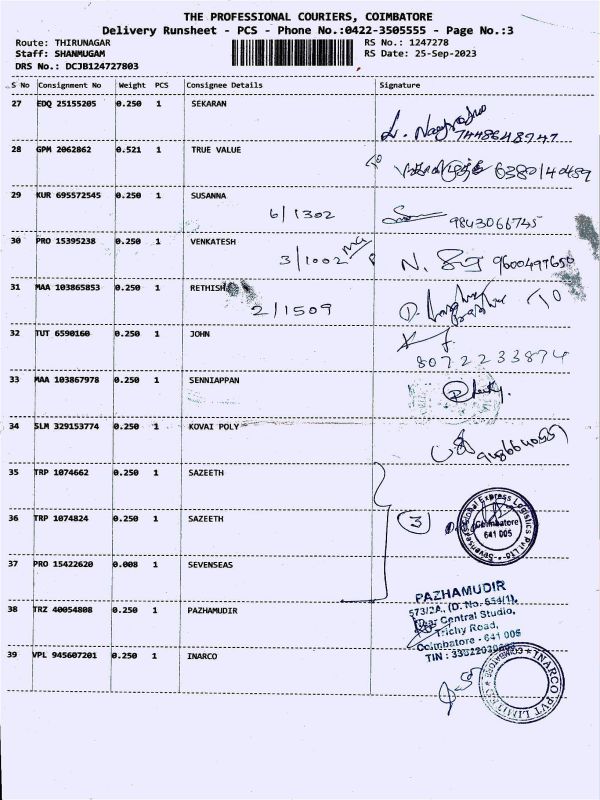 THE PROFESSIONAL COURIERS, COIMBATORE
Delivery Runsheet - PCS - Phone No.:0422-3505555 - Page No.:3
Route: THIRUNAGAR RS No.: 1247278
Staff: SHANMUGAM RS Date: 25-Sep-2023
DRS No.: DCJB124727803
S No Consignment No Weight PCS Consignee Details Signature
27 EDQ 25155205 0.250 1 SEKARAN
7448648947
28 GPM 2062862 0.521 1 TRUE VALUE
6380140489
29 KUR 695572545 0.250 1 SUSANNA
6/1302 9843066745
30 PRO 15395238 0.250 1 VENKATESH
3/1002 N. 9600497650
31 MAA 103865853 0.250 1 RETHISH
2/1509
32 TUT 6590160 0.250 1 JOHN
8072233874
33 MAA 103867978 0.250 1 SENNIAPPAN
34 SLM 329153774 0.250 1 KOVAI POLY
35 TRP 1074662 0.250 1 SAZEETH
36 TRP 1074824 0.250 1 SAZEETH
3
Express Logistics Pvt Ltd
Coimbatore
641 005
37 PRO 15422620 0.008 1 SEVENSEAS
38 TRZ 40054808 0.250 1 PAZHAMUDIR
PAZHAMUDIR
573/2A, (D. No. 654/1),
Near Central Studio,
Trichy Road,
Coimbatore - 641 005
TIN :
39 VPL 945607201 0.250 1 INARCO
INARCO PVT LIMITED
COIMBATORE